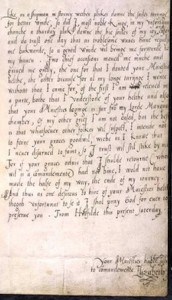 Like as a shipman in stormy wether plukes downe the sailes tarijnge
for bettar winde, so did I, most noble Kinge, in my unfortunate
chanche a thursday pluk downe the hie sailes of my joy and
comfort and do trust one day that as troblesome waves have repulsed
me bakwarde, so a gentil winde wil bringe me forwarde to
my haven. Two chief occasions moved me muche and
grived me gretly, the one for that I douted your Maiesties
helthe, the other bicause for al my longe tarijnge I wente
without that I came for, of the first I am releved in
a parte, bothe that I understode of your helthe and also
that your Maiesties loginge is far from my Lorde Marques
chamber, Of my other grief I am not eased, but the best
is that whatsoever other folkes wil suspect, I intende not
to feare your graces goodwil, wiche as I knowe that
I never disarved to faint, so I trust wil stil stike by me.
For if your graces advis that I shulde retourne (whos
wil is a commandemente) had not bine, I wold not have
made the halfe of my way, the ende of my journey.
And thus as one desirous to hire of your Maiesties helth
thogh unfortunat to se it I shal pray God for ever to
preserve you. From Hatfilde this present saterday.
Your Maiesties humble sistar
to commandemente Elizabeth